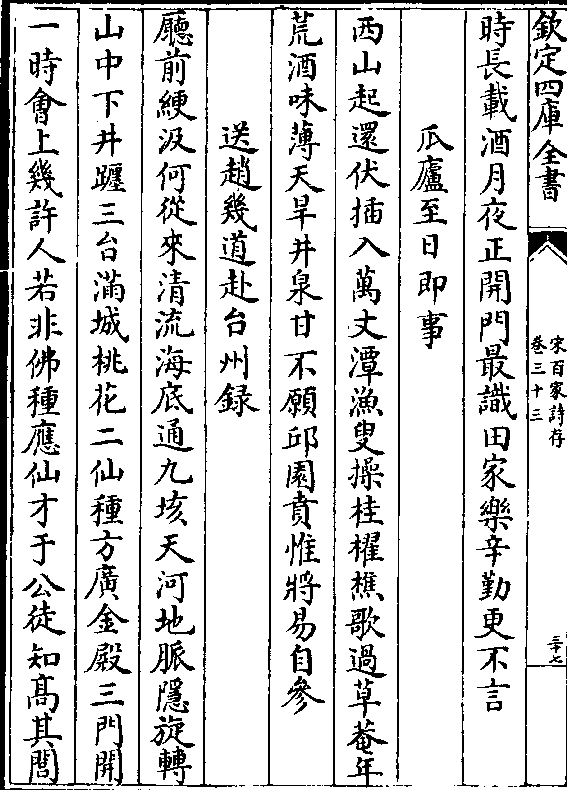 欽定四庫全書
宋百家詩存
卷三十三
三十七
時長載酒月夜正開門最識田家樂辛勤更不言
瓜廬至日即事
西山起還伏插入萬丈潭漁叟操桂櫂樵歌過草菴年
荒酒味薄天旱井泉甘不願邱園賁惟將易自參
送趙幾道赴台州錄
廳前綆汲何從來清流海底通九垓天河地脈隱旋轉
山中下井躔三台滿城桃花二仙種方廣金殿三門開
一時會上幾許人若非佛種應仙才于公徒知髙其閭